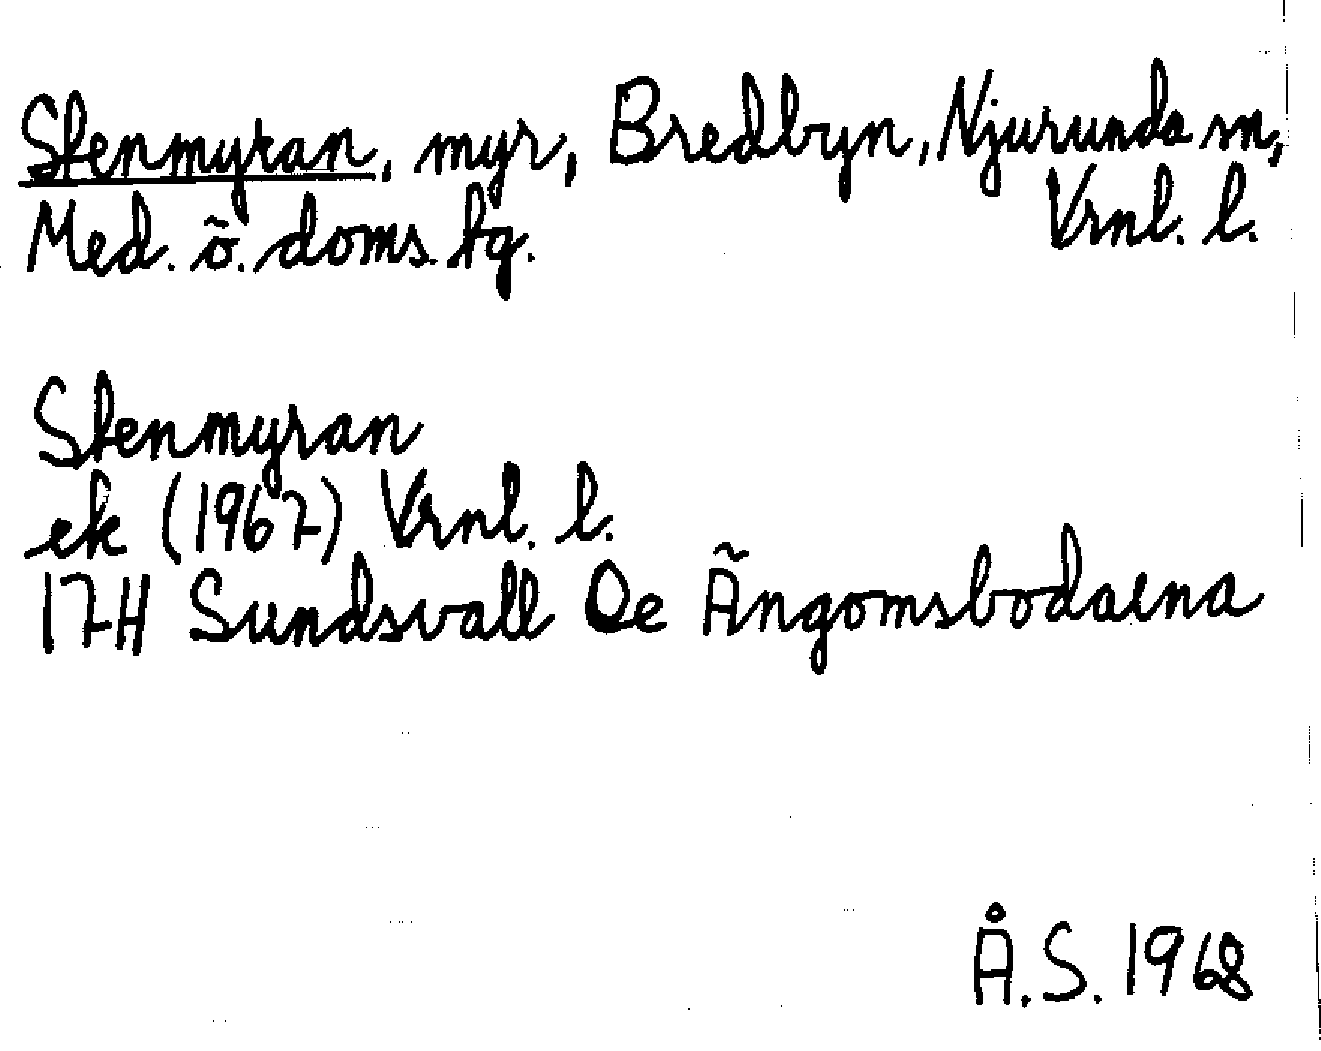 Stenmyran, myr, Bredbyn, Njurunda sn,
Med. ö. doms. tg. Vrnl. l.
Stenmyran
ek (1967) Vrnl. l.
17H Sundsvall Oe Ängomsbodarna
Å.S. 1968